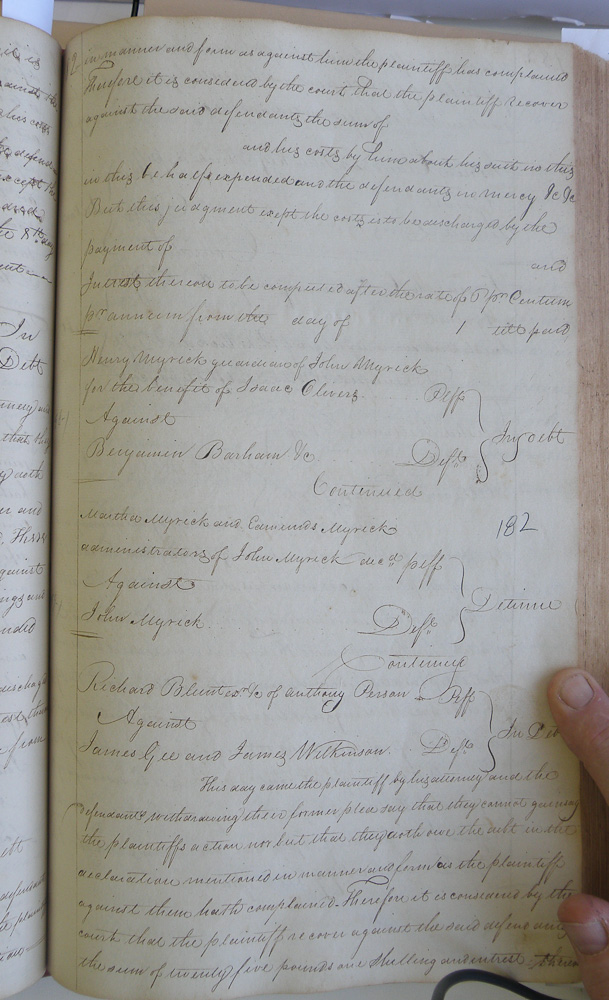 in manner and form as against him the plaintiff has complained
Therefore it is considered by the court that the plaintiff recover
against the said defendants the sum of
and his costs by him about his suit in this
in this behalf expended and the defendants in mercy &c &c
But this judgment except the costs is to be discharged by the
payment of and
Interest thereon to be computed after the rate of P pr Centum
pr annum from the day of 1 till paid
Henry Myrick guardian of John Myrick
for the benefit of Isaac Olivers Pltff
Against In Debt
Benjamin Barham &c Deft
Continued
Martha Myrick and Edmunds Myrick 182
administrators of John Myrick decd pltff
Against Detinue
John Myrick Deft
Continued
Richard Blunt exr &c of Anthony Person Pltff
Against In Debt
James Gee and James Wilkinson Deft
This day came the plaintiff by his attorney and the
defendants withdrawing their former plea say that they cannot gainsay
the plaintiffs action nor but that they doth owe the debt in the
declaration mentioned in manner and form as the plaintiff
against them hath complained. Therefore it is considered by the
court that the plaintiff recover against the said defendants
the sum of twenty five pounds one shilling and intrest thereon